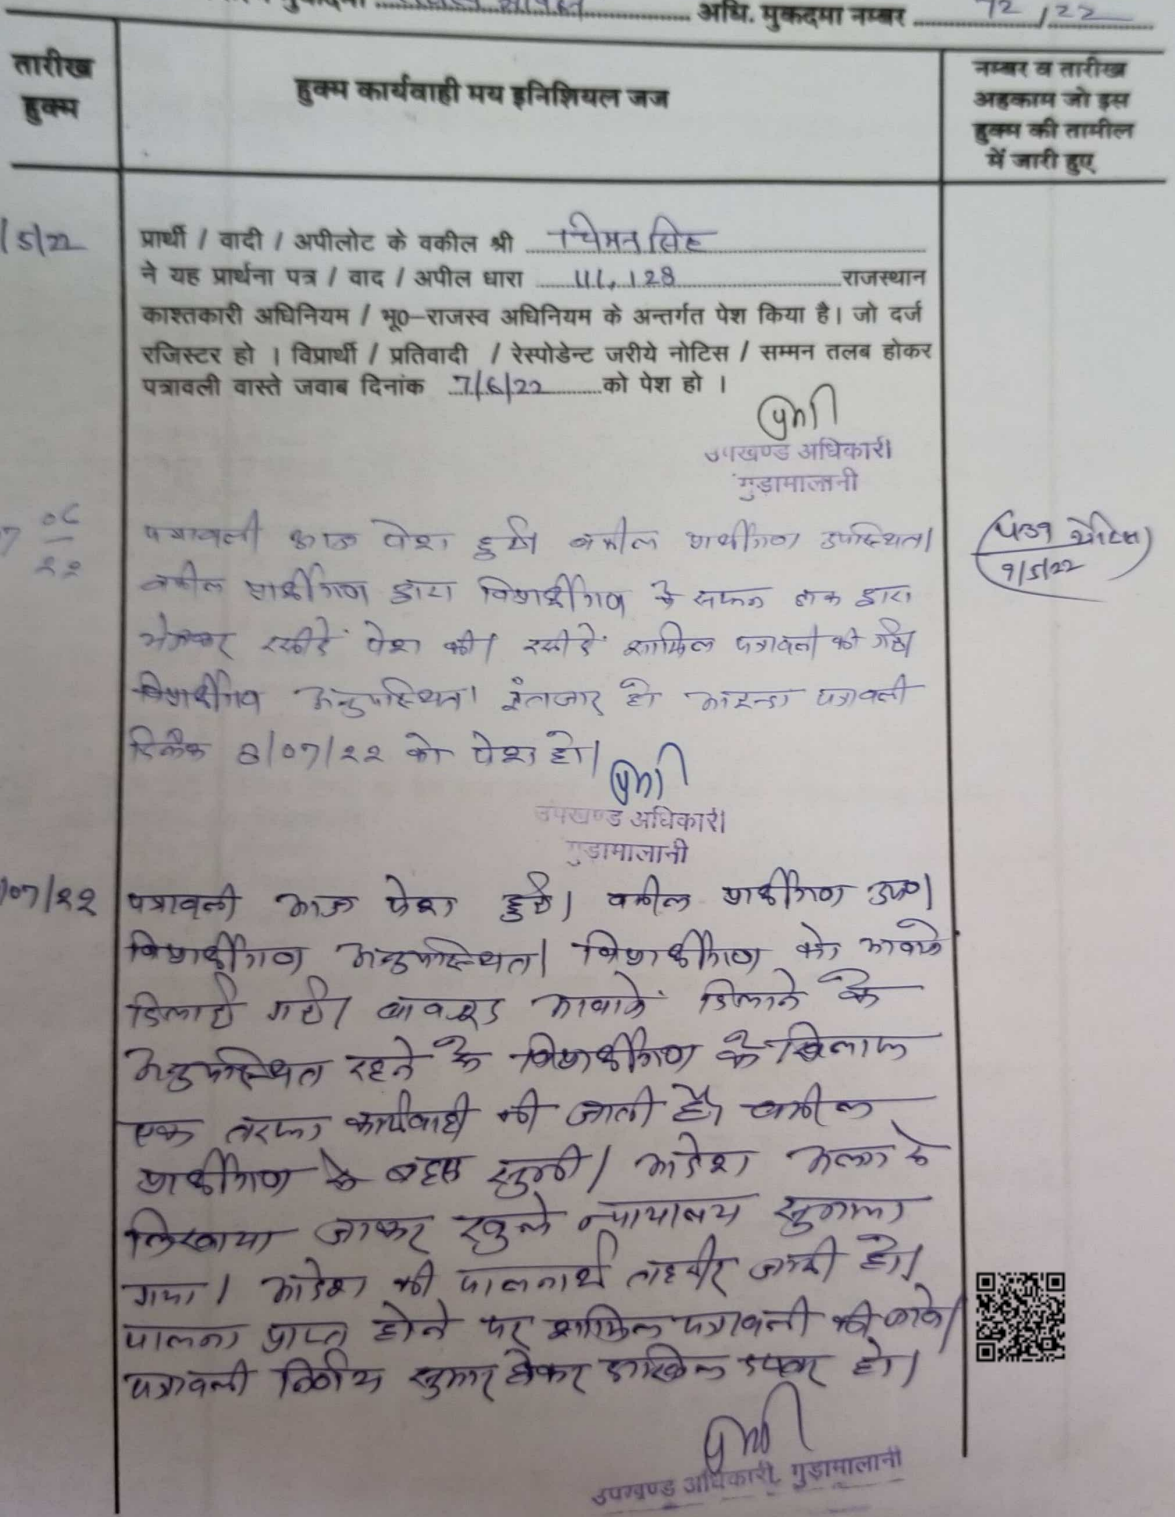 अधि. मुकदमा नम्बर 72/22
तारीख
हुक्म
हुक्म कार्यवाही मय इनिशियल जज
नम्बर व तारीख
अहकाम जो इस
हुक्म की तामील
में जारी हुए
/5/22
प्रार्थी / वादी / अपीलोट के वकील श्री चिमनसिंह
ने यह प्रार्थना पत्र / वाद / अपील धारा 111, 128 राजस्थान
काश्तकारी अधिनियम / भू0-राजस्व अधिनियम के अन्तर्गत पेश किया है। जो दर्ज
रजिस्टर हो । विप्रार्थी / प्रतिवादी / रेस्पोडेन्ट जरीये नोटिस / सम्मन तलब होकर
पत्रावली वास्ते जवाब दिनांक 7/6/22 को पेश हो ।
उपखण्ड अधिकारी
गुडामालानी
7 06
22
पत्रावली आज पेश हुई। वकील प्रार्थीगण उपस्थित।
9/5/22
वकील प्रार्थीगण द्वारा विप्रार्थीगण के सम्मन डाक द्वारा
भेजकर रसीदें पेश की। रसीदें शामिल पत्रावली की गई।
विप्रार्थीगण अनुपस्थित। इंतजार हो आइन्दा पत्रावली
दिनांक 8/07/22 को पेश हो।
उपखण्ड अधिकारी
गुडामालानी
/07/22
पत्रावली आज पेश हुई। वकील प्रार्थीगण उप०।
विप्रार्थीगण अनुपस्थित। विप्रार्थीगण को आवाजें
दिलाई गई। बावजूद आवाजें दिलाने के
अनुपस्थित रहने के विप्रार्थीगण के खिलाफ
एक तरफा कार्यवाही की जाती है। वकील
प्रार्थीगण के बहस सुनी। आदेश अलग से
लिखाया जाकर खुले न्यायालय सुनाया
गया। आदेश की पालनार्थ तहरीर जारी हो।
पालना प्राप्त होने पर शामिल पत्रावली की जावे।
पत्रावली निर्णय सुमार होकर दाखिल दफ्तर हो।
उपखण्ड अधिकारी, गुडामालानी